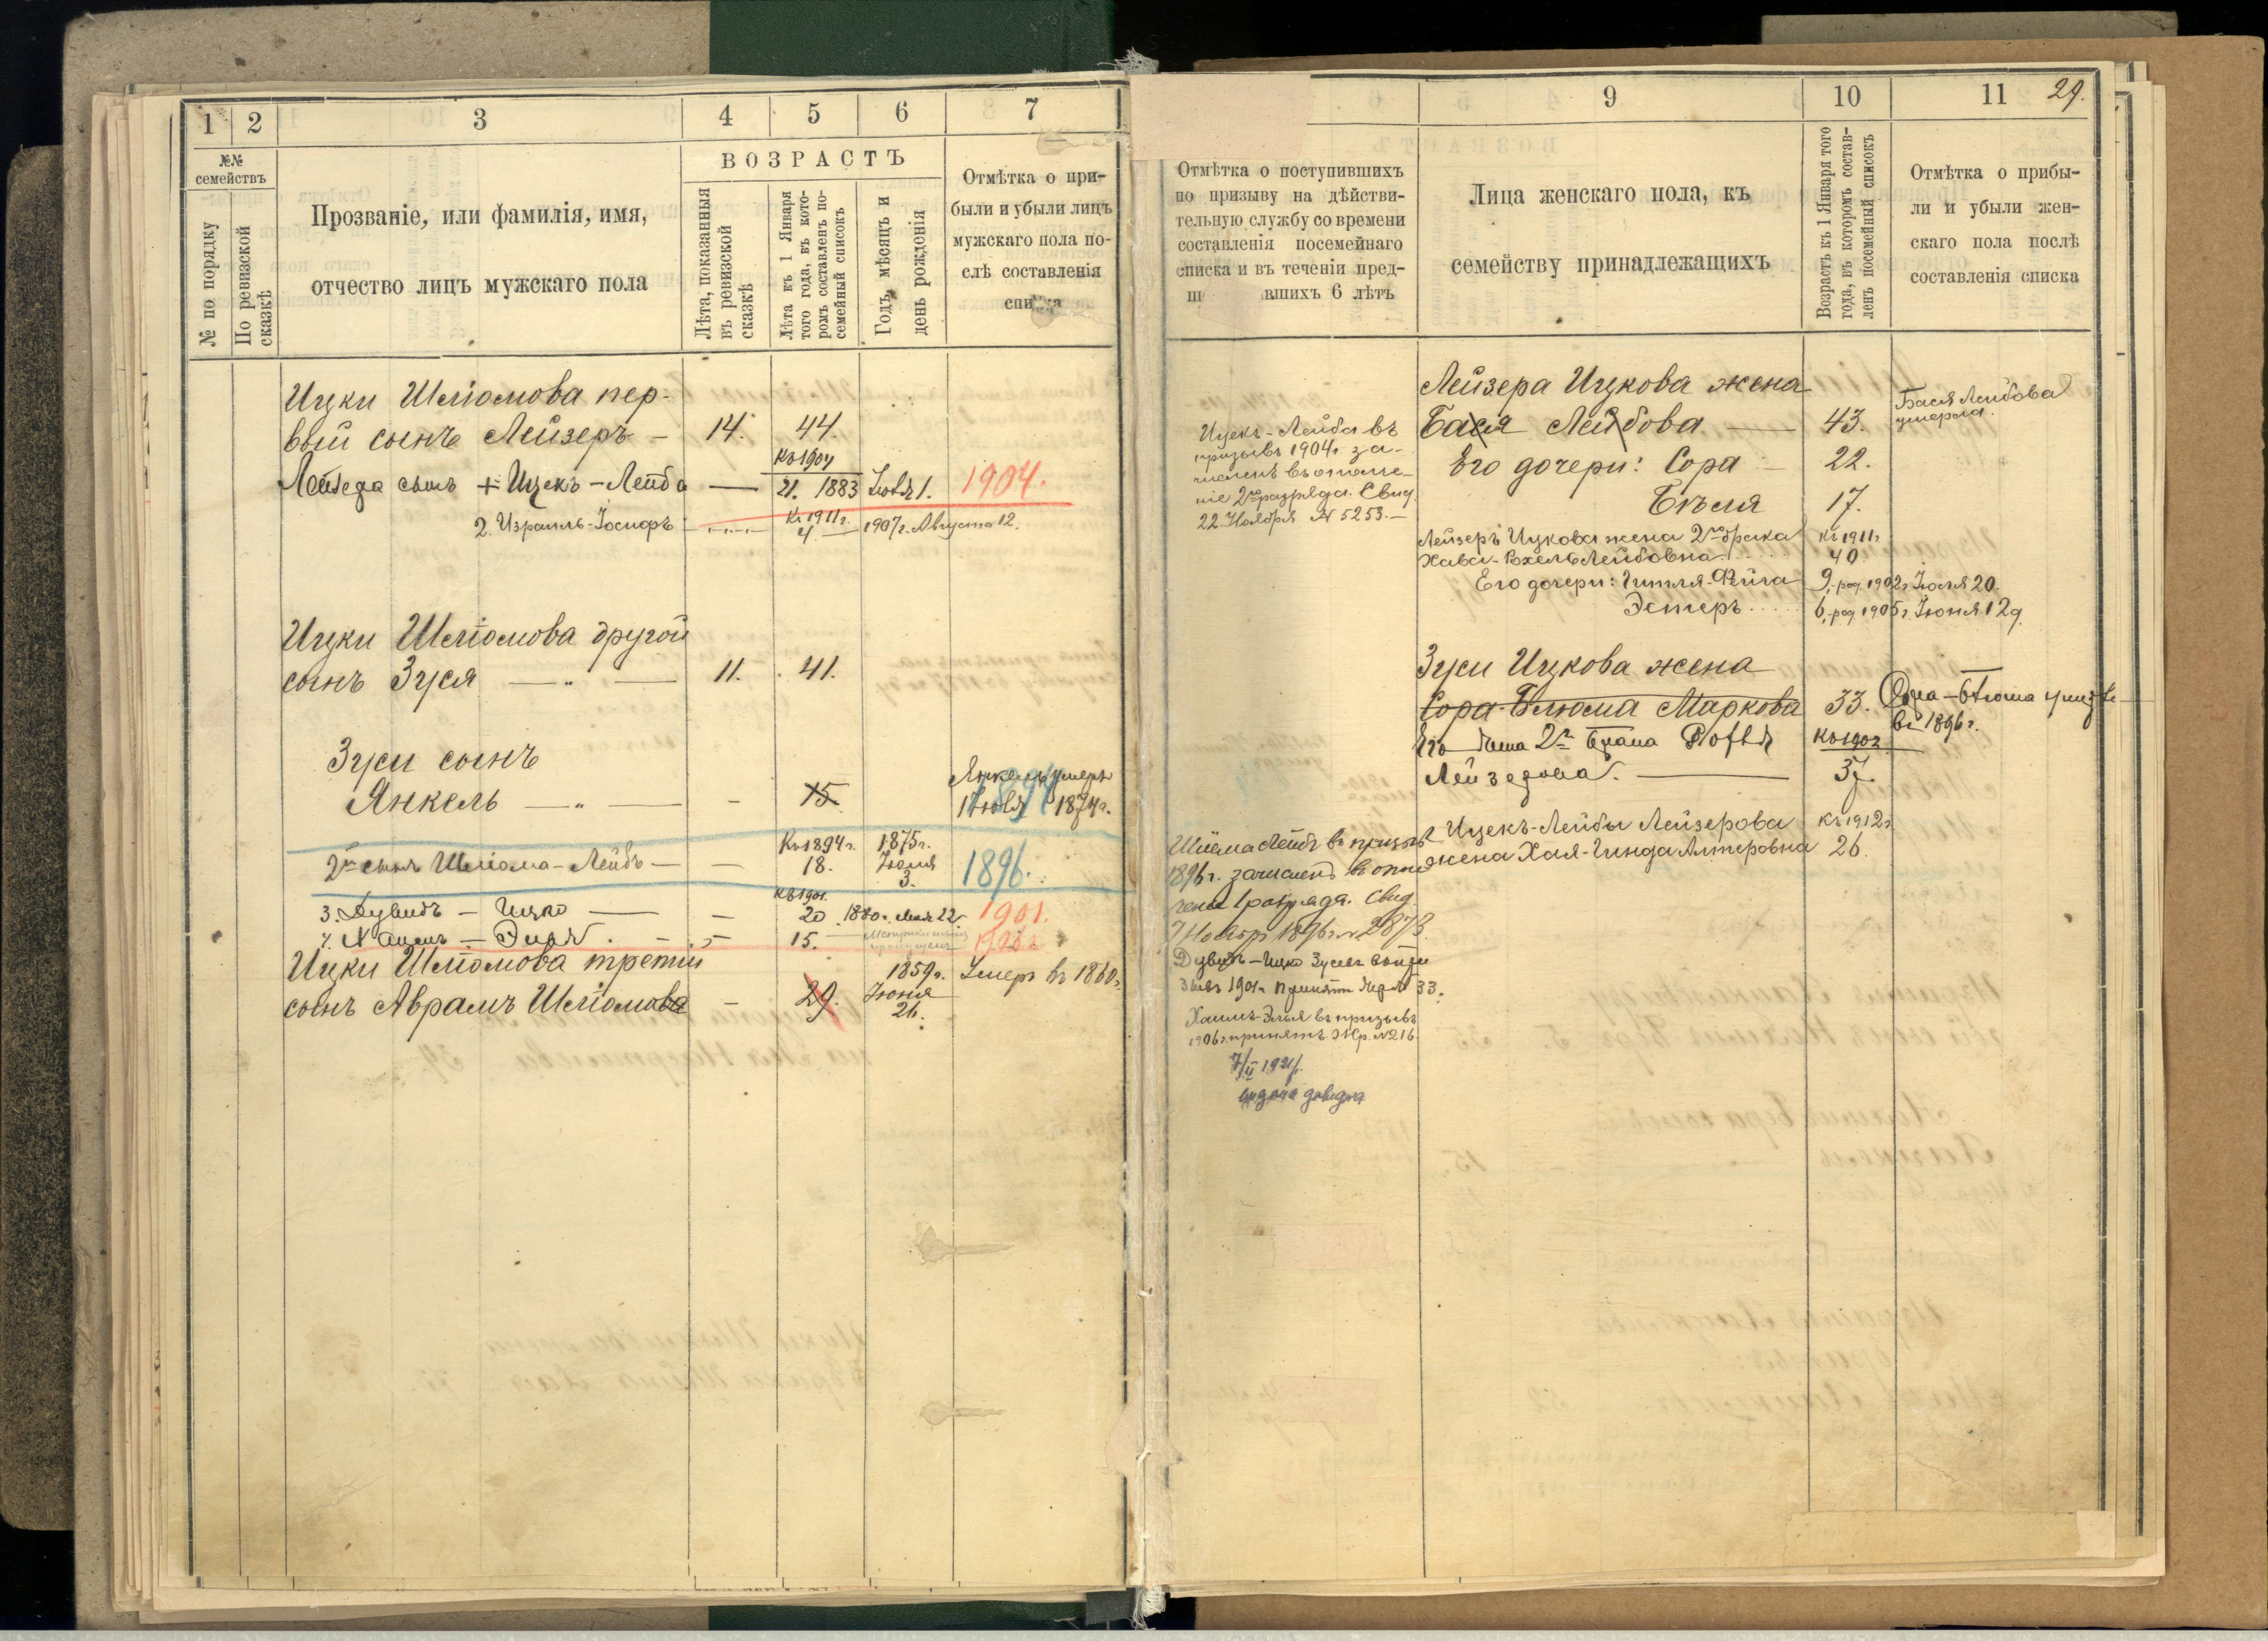 1 2 3 4 5 6 7
№№ семействъ
№ по порядку
По ревизской сказкѣ
Прозваніе, или фамилія, имя,
отчество лицъ мужскаго пола
ВОЗРАСТЪ
Лѣта, показанныя
въ ревизской
сказкѣ
Лѣта къ 1 Января
того года, въ кото-
ромъ составленъ по-
семейный списокъ
Годъ, мѣсяцъ и
день рожденія
Отмѣтка о при-
были и убыли лицъ
мужскаго пола по-
слѣ составленія
списка
Ицки Шліомова пер-
вый сынъ Лейзеръ — 14. 44.
къ 1904
Лейзера сынъ + Ицекъ-Лейба — 21. 1883 Іюля 1. 1904.
2. Израиль-Іосифъ къ 1911 г. 4. — 1907 г. Августа 12.
Ицки Шліомова другой
сынъ Зуся — " — 11. 41.
Зуси сынъ
Янкель — " — - 15
Янкель умеръ
1 Іюля 1874 г.
Къ 1894 г. 1875 г.
2й сынъ Шліома-Лейбъ — — 18. Іюля 3. 1896.
къ 1901.
3. Дувидъ — Ицко — — 20 1880 г. Мая 22 1901.
4. Хаимъ — Элья. - - 15.
Ицки Шліомова третій
сынъ Аврамъ Шліомова - 29. 1859 г. Іюня 26. Умеръ въ 1860 г.
9 10 11 29.
Отмѣтка о поступившихъ
по призыву на дѣйстви-
тельную службу со времени
составленія посемейнаго
списка и въ теченіи пред-
ш вшихъ 6 лѣтъ
Лица женскаго пола, къ
семейству принадлежащихъ
Возрастъ къ 1 Января того
года, въ которомъ состав-
ленъ посемейный списокъ
Отмѣтка о прибы-
ли и убыли жен-
скаго пола послѣ
составленія списка
Ицекъ-Лейба въ
призывъ 1904 г. за-
численъ въ ополче-
ніе 2го разряда. Свид.
22 Ноября № 5253.—
Лейзера Ицкова жена
Бася Лейбова — 43.
Бася Лейбова
умерла.
Его дочери: Сора — 22.
Бѣля 17.
Лейзеръ Ицкова жена 2го брака къ 1911 г.
Хава-Рохель Лейбовна 40
Его дочери: Гитля-Фейга 9, род. 1902 г. Іюля 20.
Эстеръ 6, род. 1905 г. Іюня 12 д.
Зуси Ицкова жена
Сора-Блюма Маркова 33.
въ 1896 г.
Его жена 2го брака къ 1902
Лейзерова. — 37.
Ицекъ-Лейбы Лейзерова къ 1912 г.
жена Хая-Гинда Алтеровна 26.
Шліома Лейбъ въ призывъ
1896 г. зачисленъ въ опол
ченіе 1 разряда. Свид.
7 Ноября 1896 г. № 2873.
Дувидъ-Ицко Зусевъ въ при
зывъ 1901 г. принятъ 33.
Хаимъ-Элья въ призывъ
1906 г. принятъ. Жр. №216.
7/II 1921 г.
видана довідка